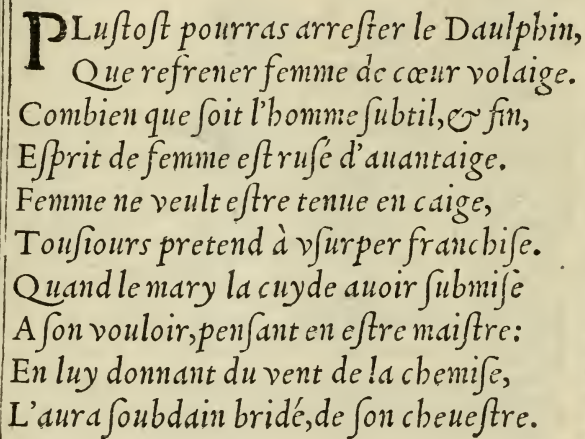 PLuſtoſt pourras arreſter le Daulphin,
Que refrener femme de cœur volaige.
Combien que ſoit l'homme ſubtil,& fin,
Eſprit de femme eſt ruſé d'auantaige.
Femme ne veult eſtre tenue en caige,
Touſiours pretend à vſurper franchiſe.
Quand le mary la cuyde auoir ſubmiſe
A ſon vouloir,penſant en eſtre maiſtre:
En luy donnant du vent de la chemiſe,
L'aura ſoubdain bridé,de ſon cheueſtre.